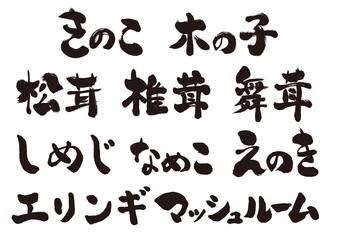 きのこ 木の子
松茸 椎茸 舞茸
しめじ なめこ えのき
エリンギ マッシュルーム